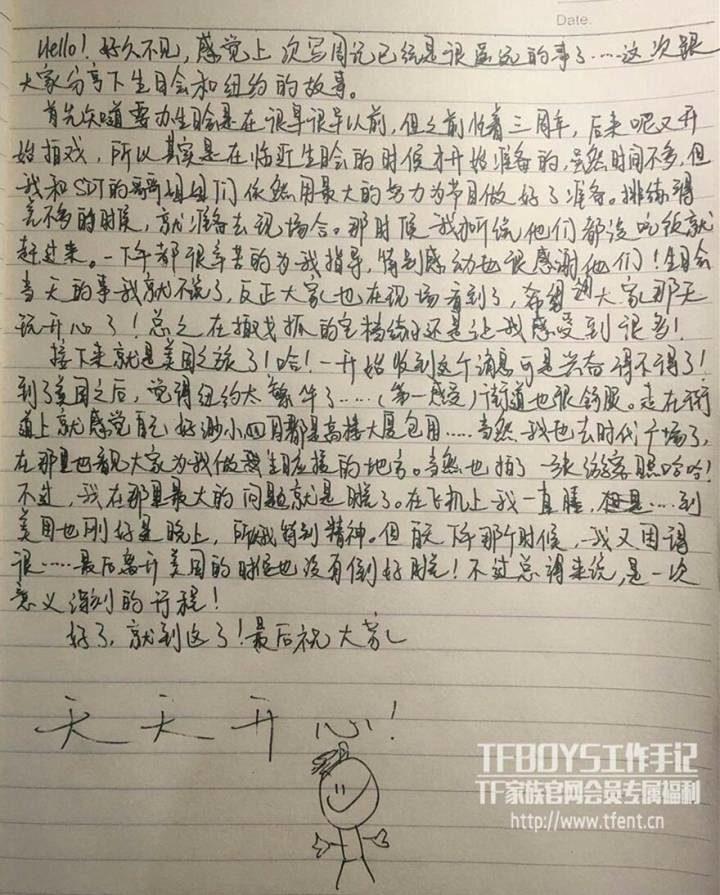 Date.
Hello! 好久不见, 感觉上次写周记已经是很遥远的事了……这次跟
大家分享下生日会和纽约的故事。
首先知道要办生日会是在很早很早以前, 但之前忙着三周年, 后来呢又开
始拍戏, 所以其实是在临近生日会的时候才开始准备的, 虽然时间不多, 但
我和SDT的哥哥姐姐们依然用最大的努力为节目做好了准备。排练得
差不多的时候, 就准备去现场合。那时候我听说他们都没吃饭就
赶过来。一下午都很辛苦的为我指导, 特别感动也很感谢他们! 生日会
当天的事我就不说了, 反正大家也在现场看到了, 希望大家那天
玩开心了! 总之在拍戏抓的空档练习还是让我感受到很多!
接下来就是美国之旅了! 哈! 一开始收到这个消息可是兴奋得不得了!
到了美国之后, 觉得纽约太繁华了……(第一感受) 街道也很舒服。走在街
道上就感觉自己好渺小四周都是高楼大厦包围……当然我也去时代广场了,
在那里也看见大家为我做生日应援的地方。当然也拍了一张游客照哈哈!
不过, 我在那里最大的问题就是时差了。在飞机上我一直睡, ……到
美国也刚好是晚上, 所以我特别精神。但每天下午那个时候, 我又困得
很……最后离开美国的时候也没有倒好时差! 不过总得来说, 是一次
意义深刻的行程!
好了, 就到这了! 最后祝大家
天天开心!
TFBOYS工作手记
TF家族官网会员专属福利
http://www.tfent.cn